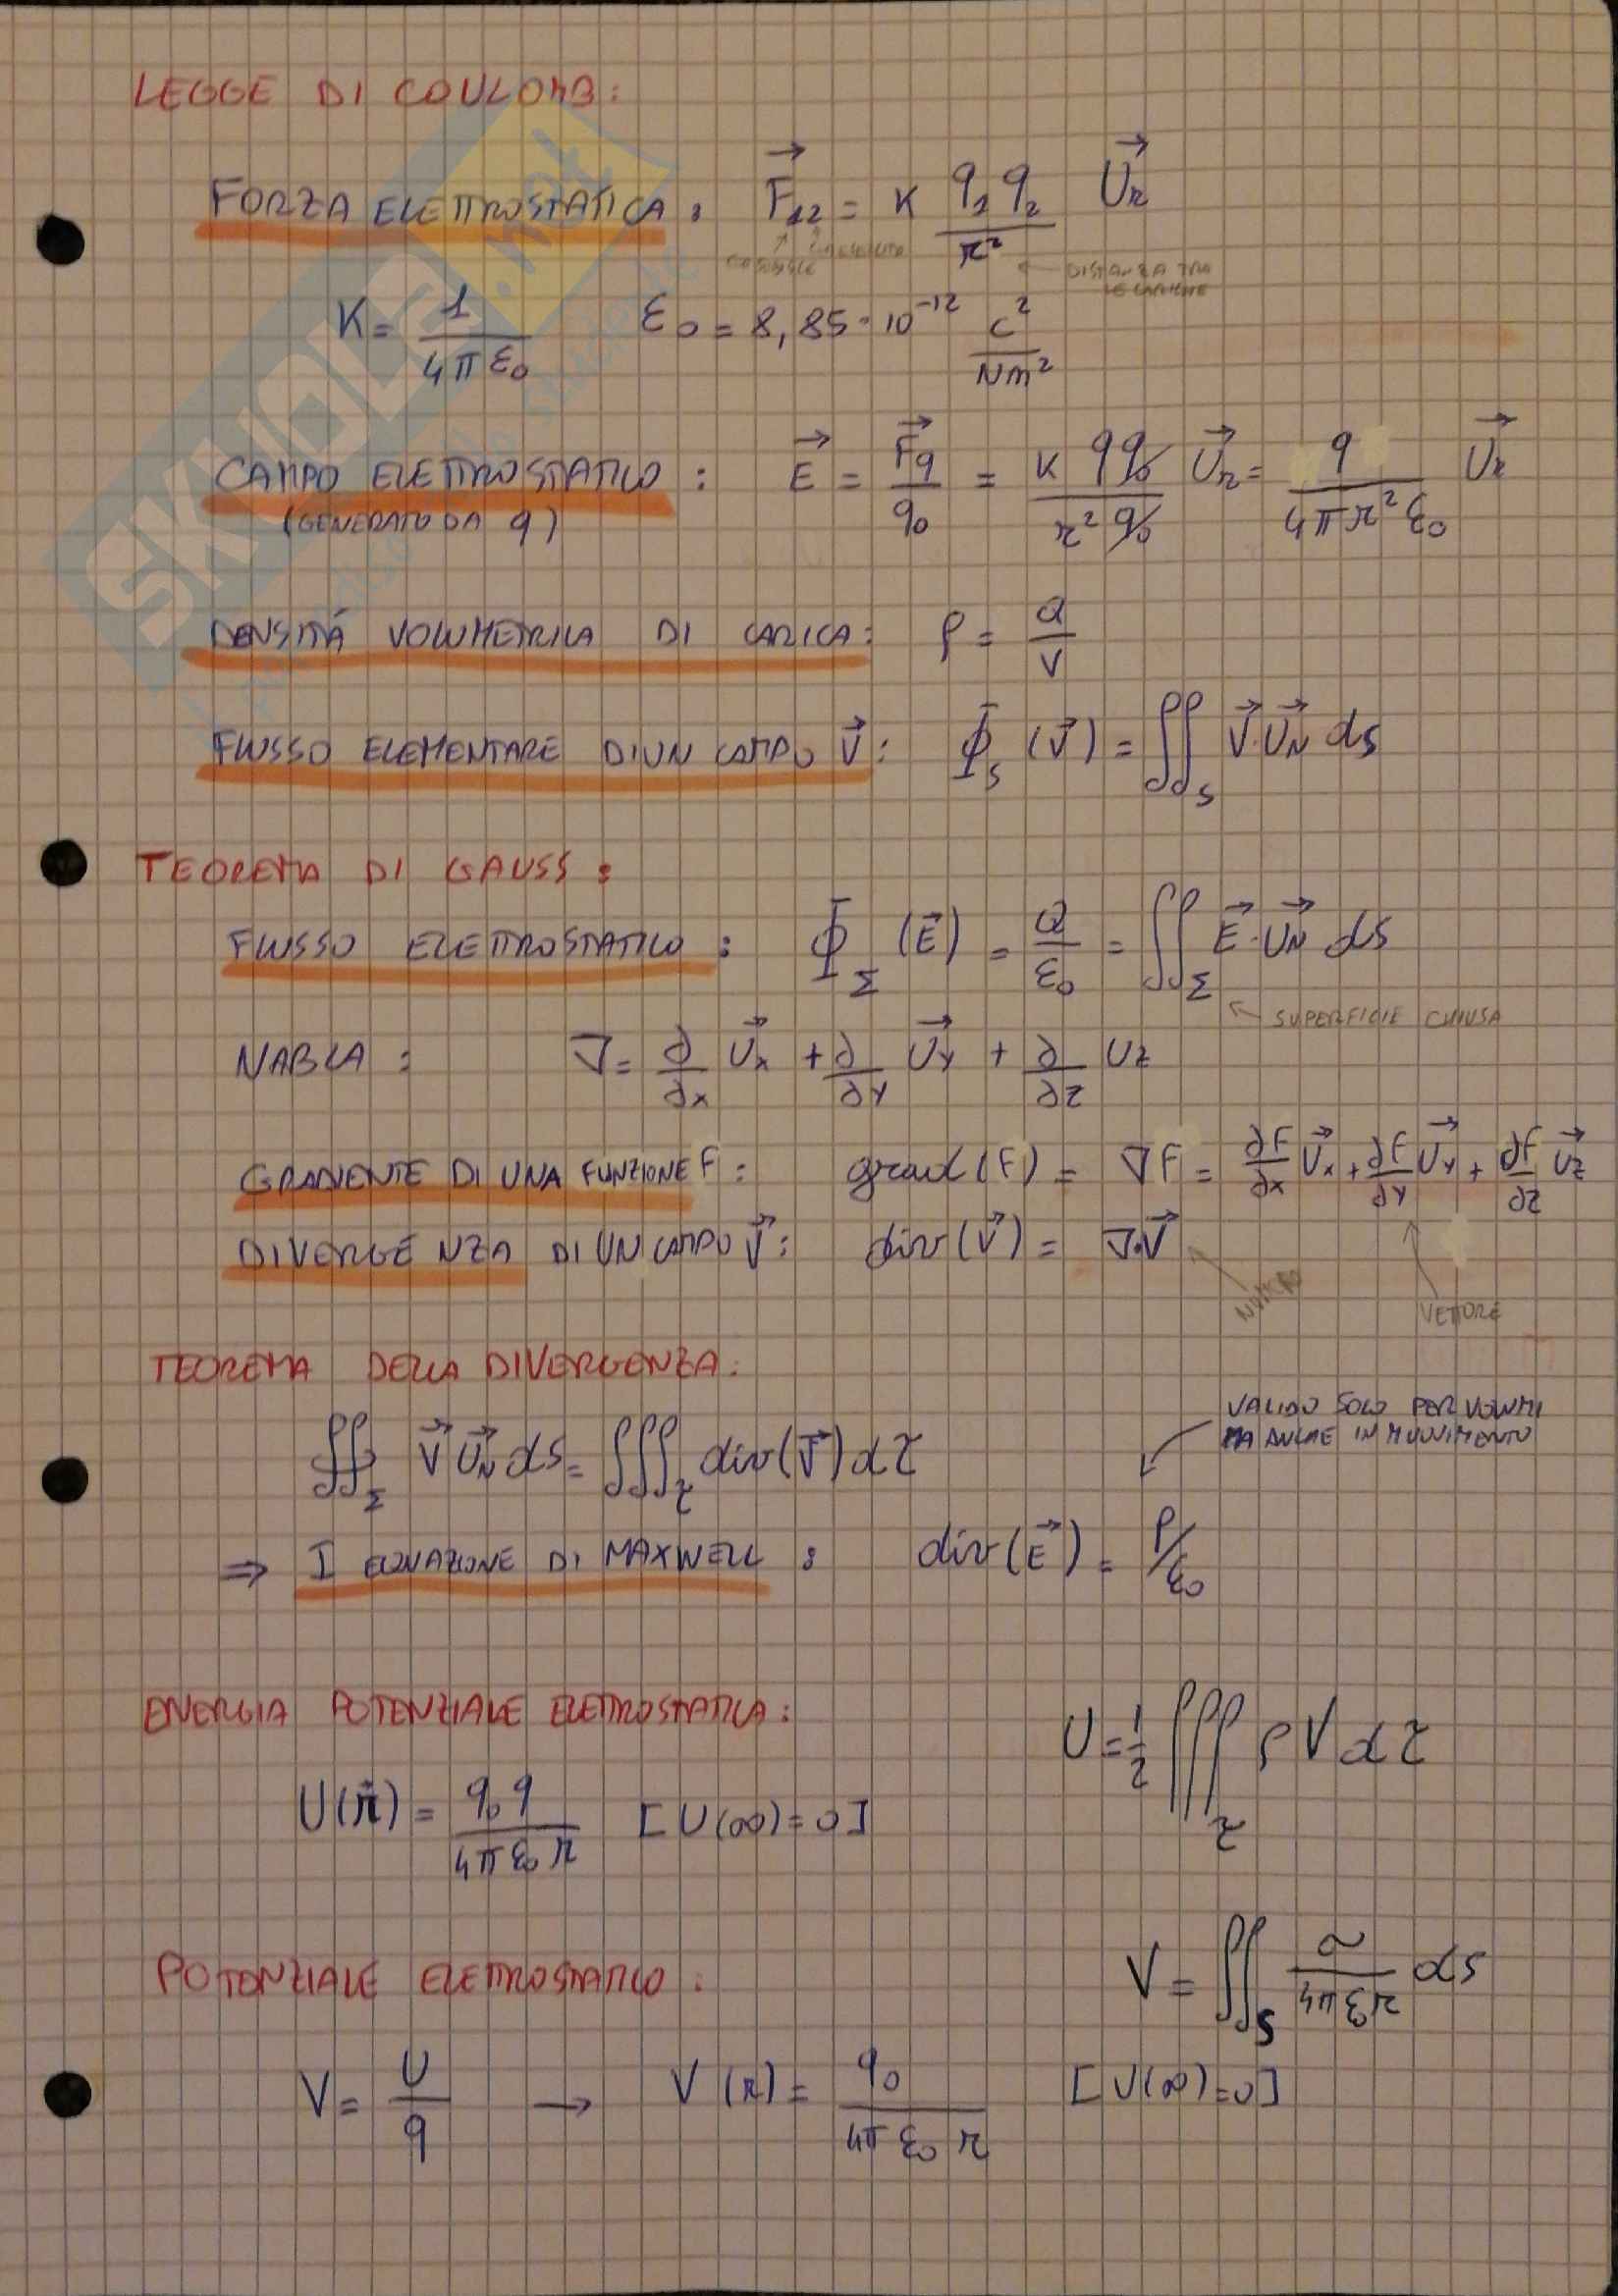 LEGGE DI COULOMB:
FORZA ELETTROSTATICA: F⃗₁₂ = K q₁q₂/r² U⃗r
DISTANZA TRA
LE CARICHE
K = 1/(4πε₀) ε₀ = 8,85·10⁻¹² C²/Nm²
CAMPO ELETTROSTATICO: E⃗ = F⃗q/q₀ = K q q₀/(r² q₀) U⃗r = q/(4πr²ε₀) U⃗r
(GENERATO DA q)
DENSITÁ VOLUMETRICA DI CARICA: ρ = Q/V
FLUSSO ELEMENTARE DI UN CAMPO V⃗: Φ_S (V⃗) = ∬_S V⃗·U⃗N dS
TEOREMA DI GAUSS:
FLUSSO ELETTROSTATICO: Φ_Σ (E⃗) = Q/ε₀ = ∬_Σ E⃗·U⃗N dS
SUPERFICIE CHIUSA
NABLA: ∇ = ∂/∂x U⃗x + ∂/∂y U⃗y + ∂/∂z Uz
GRADIENTE DI UNA FUNZIONE F: grad(F) = ∇F = ∂F/∂x U⃗x + ∂F/∂y U⃗y + ∂F/∂z U⃗z
DIVERGENZA DI UN CAMPO V⃗: div(V⃗) = ∇·V⃗
NUMERO
VETTORE
TEOREMA DELLA DIVERGENZA:
VALIDO SOLO PER VOLUMI
MA ANCHE IN MOVIMENTO
∯_Σ V⃗ U⃗N dS = ∭_τ div(V⃗) dτ
⇒ I EQUAZIONE DI MAXWELL: div(E⃗) = ρ/ε₀
ENERGIA POTENZIALE ELETTROSTATICA:
U = 1/2 ∭_τ ρ V dτ
U(r⃗) = q₀q/(4πε₀r) [U(∞)=0]
POTENZIALE ELETTROSTATICO:
V = ∬_S σ/(4πε₀r) dS
V = U/q → V(r) = q₀/(4πε₀r) [U(∞)=0]
SKUOLA.net